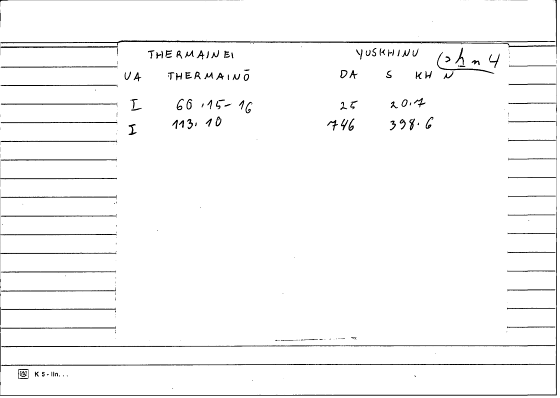 THERMAINEI YUSKHINU
UA THERMAINŌ DA S KH N
I 66.15-16 25 20.7
I 113.10 746 398.6
K 5-iln...